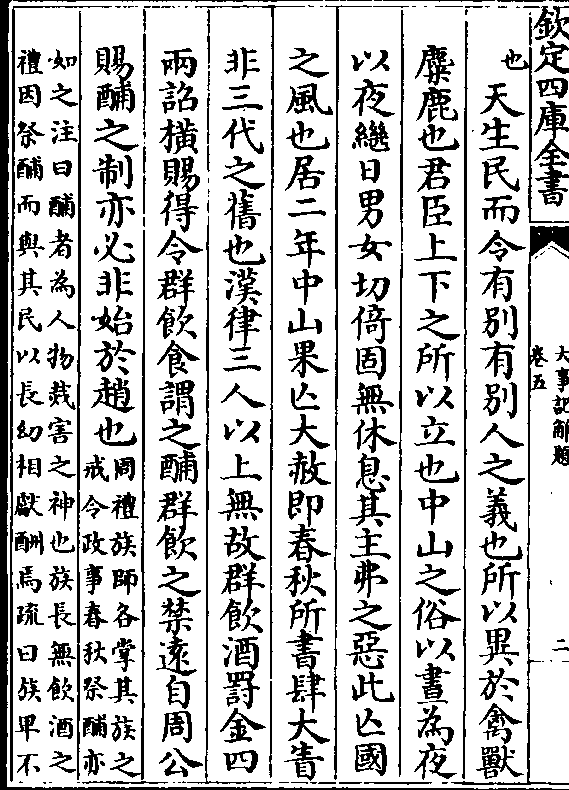 欽定四庫全書
大事記解題
卷五
二
也
天生民而令有别有别人之義也所以異於禽獸
麋鹿也君臣上下之所以立也中山之俗以晝為夜
以夜繼日男女切倚固無休息其主弗之惡此亡國
之風也居二年中山果亡大赦即春秋所書肆大眚
非三代之舊也漢律三人以上無故群飲酒罰金四
兩詔横賜得令群飲食謂之酺群飲之禁逺自周公
賜酺之制亦必非始於趙也
周禮族師各掌其族之
戒令政事春秋祭酺亦
如之注曰酺者為人物烖害之神也族長無飲酒之
禮因祭酺而與其民以長幼相獻酬焉疏曰族卑不